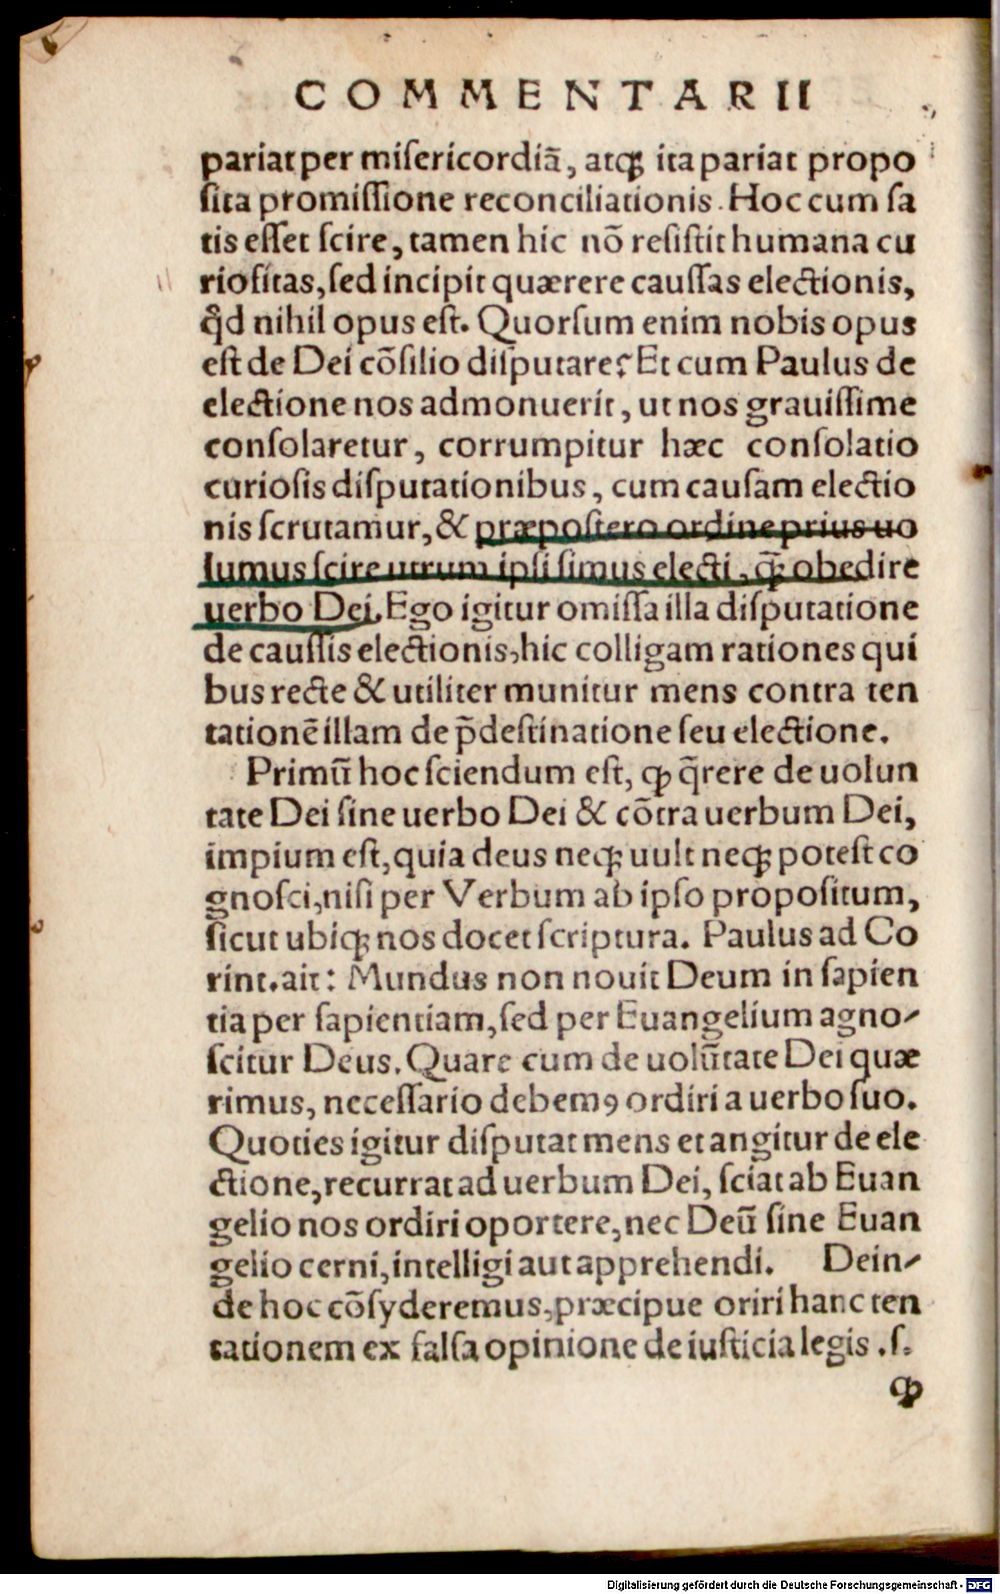 COMMENTARII
pariat per miſericordiã, atq́ꝫ ita pariat propo
ſita promiſſione reconciliationis. Hoc cum ſa
tis eſſet ſcire, tamen hic nõ reſiſtit humana cu
rioſitas, ſed incipit quærere cauſſas electionis,
qd̓ nihil opus eſt. Quorſum enim nobis opus
eſt de Dei cõſilio diſputare? Et cum Paulus de
electione nos admonuerit, ut nos grauiſſime
conſolaretur, corrumpitur hæc conſolatio
curioſis diſputationibus, cum cauſam electio
nis ſcrutamur, & præpoſtero ordine prius uo
lumus ſcire utrum ipſi ſimus electi, q̃ꝫ obedire
uerbo Dei. Ego igitur omiſſa illa diſputatione
de cauſſis electionis, hic colligam rationes qui
bus recte & utiliter munitur mens contra ten
tationẽ illam de p̃deſtinatione ſeu electione.
Primũ hoc ſciendum eſt, ꝙ q̃rere de uolun
tate Dei ſine uerbo Dei & cõtra uerbum Dei,
impium eſt, quia deus neqꝫ uult neqꝫ poteſt co
gnoſci, niſi per Verbum ab ipſo propoſitum,
ſicut ubiqꝫ nos docet ſcriptura. Paulus ad Co
rint. ait: Mundus non nouit Deum in ſapien
tia per ſapientiam, ſed per Euangelium agno-
ſcitur Deus. Quare cum de uolũtate Dei quæ
rimus, neceſſario debemꝰ ordiri a uerbo ſuo.
Quoties igitur diſputat mens et angitur de ele
ctione, recurrat ad uerbum Dei, ſciat ab Euan
gelio nos ordiri oportere, nec Deũ ſine Euan
gelio cerni, intelligi aut apprehendi. Dein-
de hoc cõſyderemus, præcipue oriri hanc ten
tationem ex falſa opinione de iuſticia legis .ſ.
ꝙ
Digitalisierung gefördert durch die Deutsche Forschungsgemeinschaft - DFG